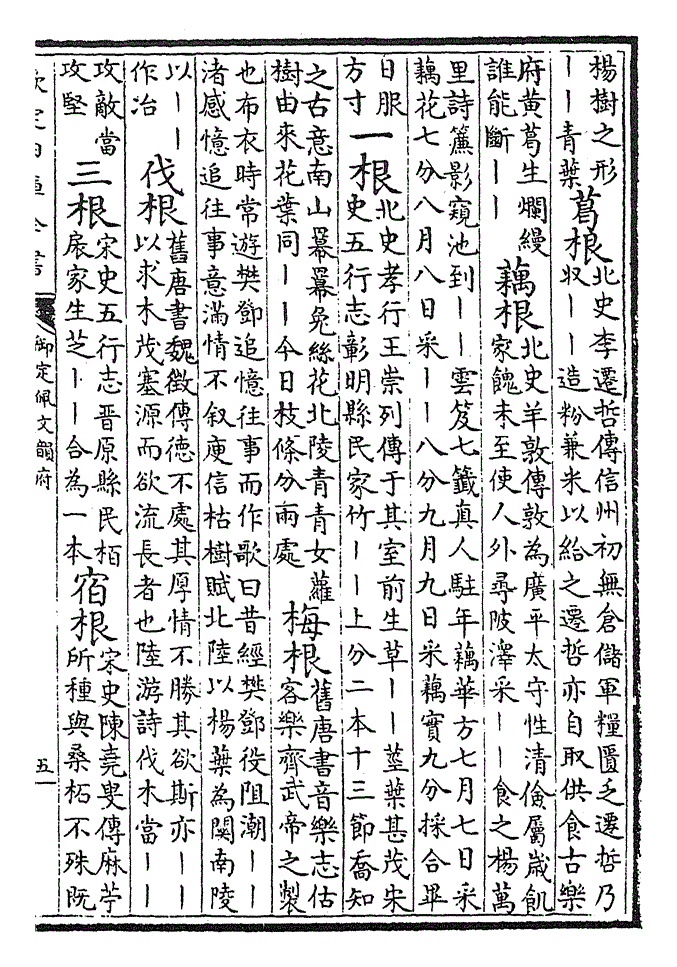 楊樹之形
丨丨青葉
葛根
北史李遷哲傳信州初無倉儲軍糧匱乏遷哲乃
收丨丨造粉兼米以給之遷哲亦自取供食古樂
府黄葛生爛縵
誰能斷丨丨
藕根
北史羊敦傳敦為廣平太守性清儉屬歲飢
家餽未至使人外尋陂澤采丨丨食之楊萬
里詩簾影窺池到丨丨雲笈七籤真人駐年藕華方七月七日采
藕花七分八月八日采丨丨八分九月九日采藕實九分採合畢
日服
方寸
一根
北史孝行王崇列傳于其室前生草丨丨莖葉甚茂宋
史五行志彰明縣民家竹丨丨上分二本十三節喬知
之古意南山冪冪兔絲花北陵青青女蘿
樹由來花葉同丨丨今日枝條分兩處
梅根
舊唐書音樂志估
客樂齊武帝之製
也布衣時常遊樊鄧追憶往事而作歌曰昔經樊鄧役阻潮丨丨
渚感憶追往事意滿情不叙庾信枯樹賦北陸以楊葉為關南陵
以丨丨
作冶
伐根
舊唐書魏徵傳徳不處其厚情不勝其欲斯亦丨丨
以求木茂塞源而欲流長者也陸游詩伐木當丨丨
攻敵當
攻堅
三根
宋史五行志晉原縣民栢
扆家生芝丨丨合為一本
宿根
宋史陳堯叟傳麻苧
所種與桑柘不殊既
欽定四庫全書
御定佩文韻府
五